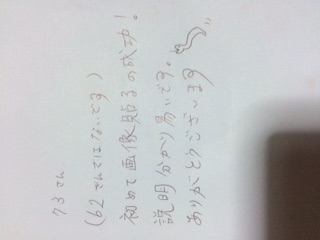 73さん
(62さんではないです)
初めて画像貼るの成功!
説明分かり易いです。
ありがとうございます